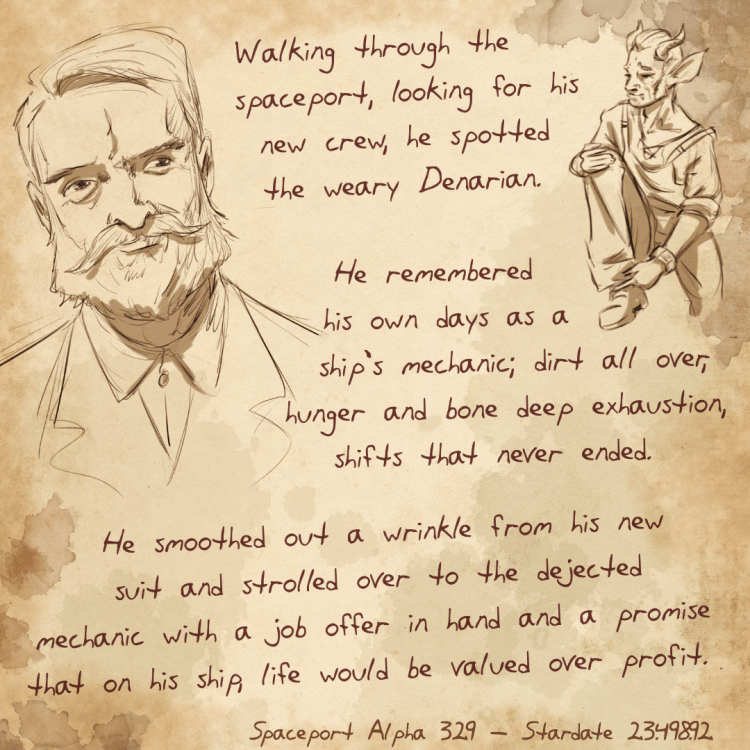 Walking through the
spaceport, looking for his
new crew, he spotted
the weary Denarian.
He remembered
his own days as a
ship's mechanic; dirt all over,
hunger and bone deep exhaustion,
shifts that never ended.
He smoothed out a wrinkle from his new
suit and strolled over to the dejected
mechanic with a job offer in hand and a promise
that on his ship, life would be valued over profit.
Spaceport Alpha 329 – Stardate 2349892